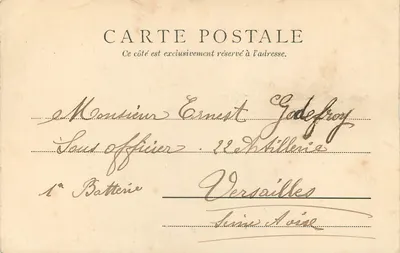 CARTE POSTALE
Ce côté est exclusivement réservé à l'adresse.
Monsieur Ernest Godefroy
Sous officier . 22 Artillerie
1e Batterie
Versailles
Seine & Oise